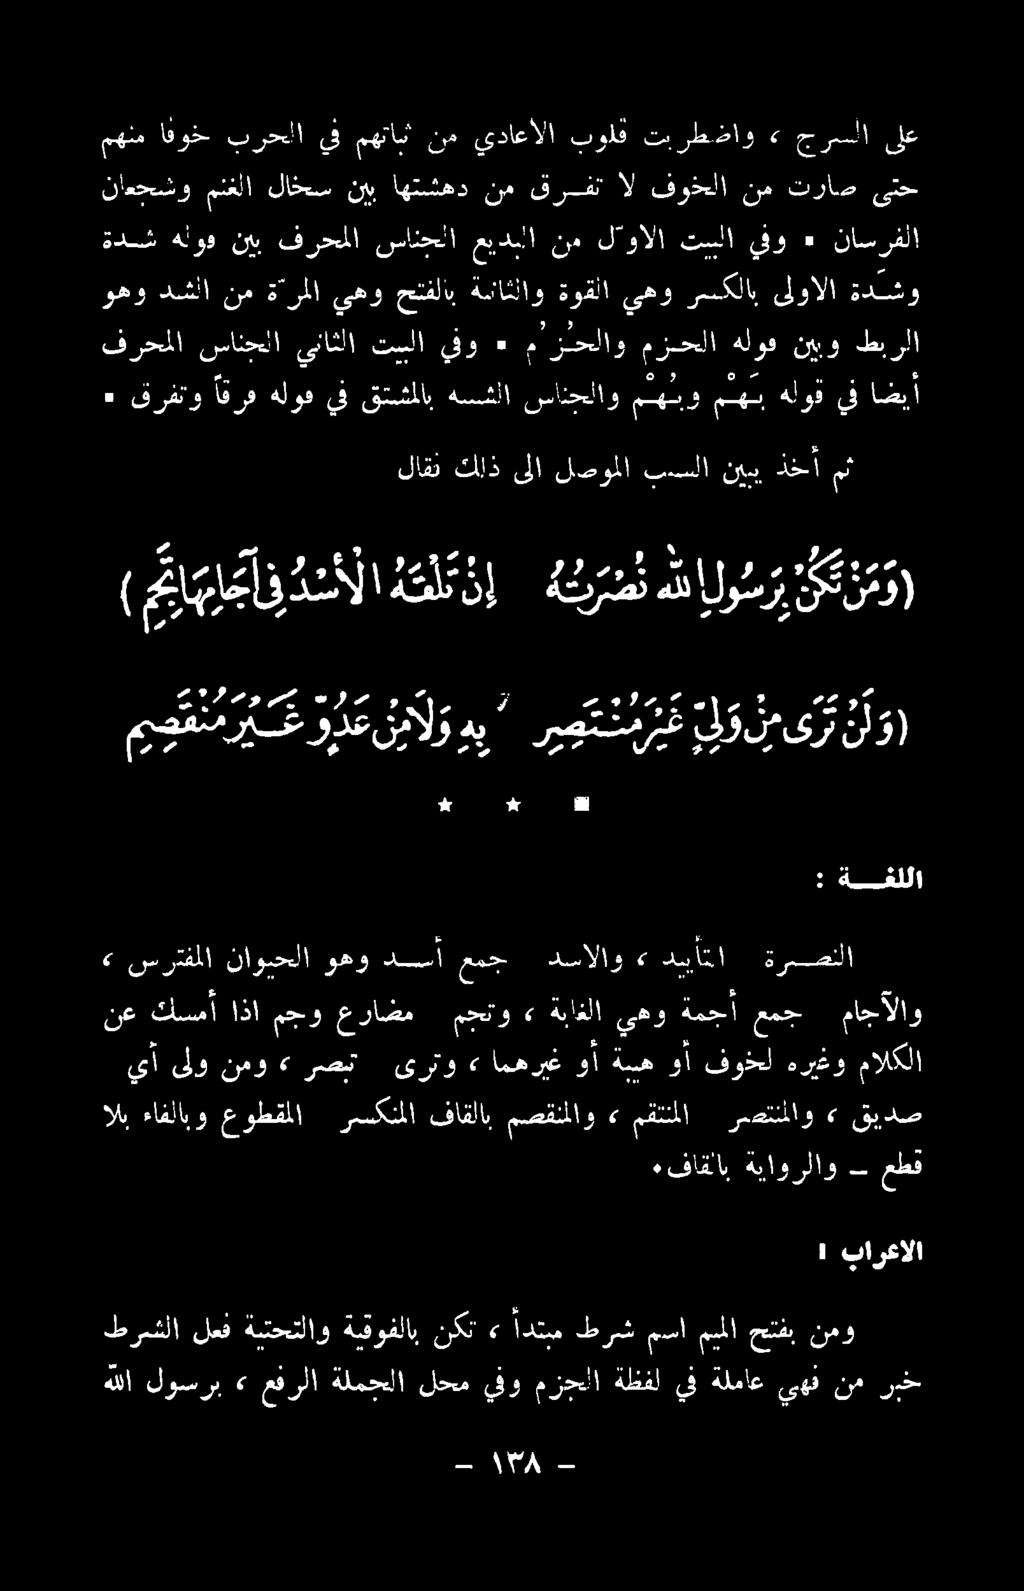 على السرج ، واضطربت قلوب الاعادي من ثباتهم في الحرب خوفا منهم
حتى صارت من الخوف لا تفرق من دهشتها بين سخال الغنم وشجعان
الفرسان ▪ وفي البيت الاوّل من البديع الجناس المحرف بين قوله شدة
وشدة الاولى بالكسر وهي القوة والثانية بالفتح وهي المرّة من الشد وهو
الربط وبين قوله الحزم والحُزُم ▪ وفي البيت الثاني الجناس المحرف
أيضا في قوله بَهْم وبُهْم والجناس الشبه بالمشتق في قوله فرقاً وتفرق ▪
ثم أخذ يبين السبب الموصل الى ذلك فقال
(وَمَنْ تَكُنْ بِرَسُولِ اللهِ نُصْرَتُهُ إِنْ تَلْقَهُ الْأُسْدُ فِي آجَامِهَا تَجِمِ)
(وَلَنْ تَرَى مِنْ وَلِيٍّ غَيْرَ مُنْتَصِرٍ بِهِ وَلَا مِنْ عَدُوٍّ غَيْرَ مُنْقَصِمِ
▪ ★ ★
اللغـــة :
النصرة التأييد ، والاسد جمع أسد وهو الحيوان المفترس ،
والآجام جمع أجمة وهي الغابة ، وتجم مضارع وجم اذا أمسك عن
الكلام وغيره لخوف أو هيبة أو غيرهما ، وترى تبصر ، ومن ولى أي
صديق ، والمنتصر المنتقم ، والمنقصم بالقاف المنكسر المقطوع وبالفاء بلا
قطع – والرواية بالقاف •
الاعراب :
ومن بفتح الميم اسم شرط مبتدأ ، تكن بالفوقية والتحتية فعل الشرط
خبر من فهي عاملة في لفظة الجزم وفي محل الجملة الرفع ، برسول الله
– ١٣٨ –